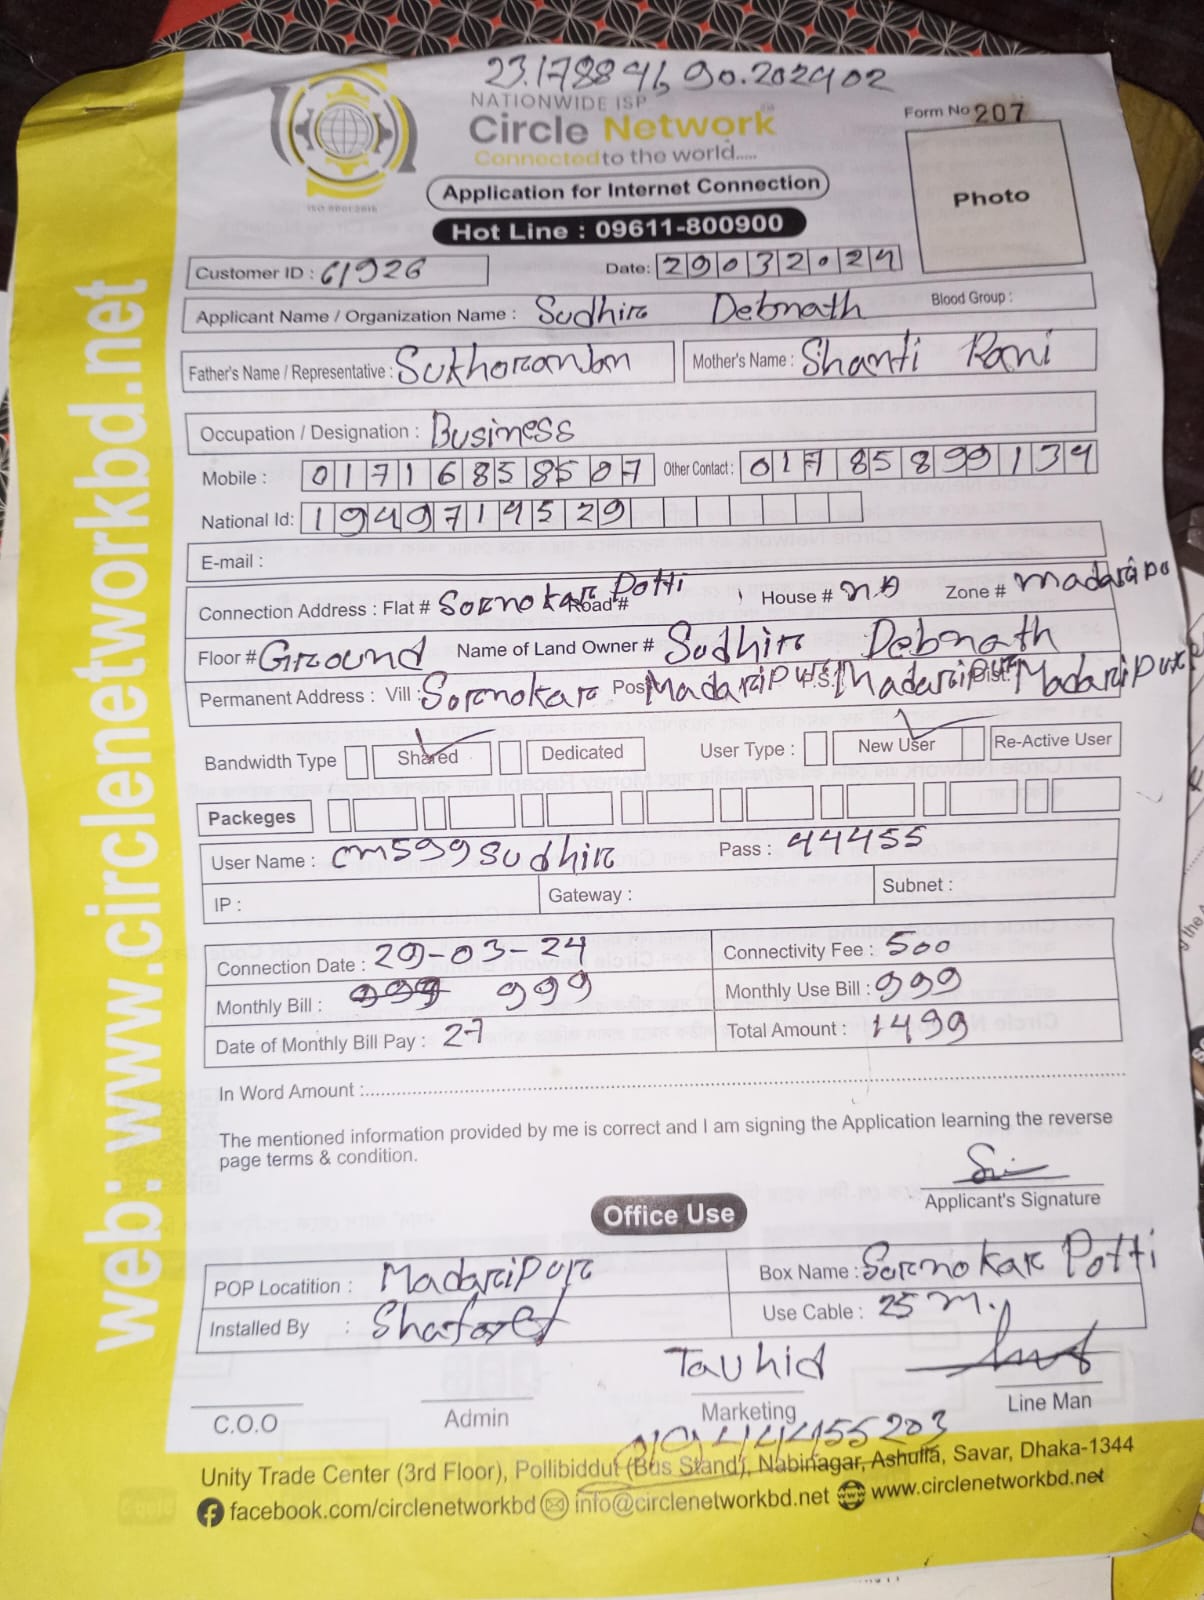 23.178896, 90.202902
NATIONWIDE ISP
Circle Network
Connected to the world.....
Form No 207
Photo
ISO 9001:2015
Application for Internet Connection
Hot Line : 09611-800900
Customer ID : 61926
Date: 29032024
Applicant Name / Organization Name : Sudhir Debnath Blood Group :
Father's Name / Representative : Sukhoranjan Mother's Name : Shanti Rani
Occupation / Designation : Business
Mobile : 01716858587 Other Contact : 01785899134
National Id: 1949714529
E-mail :
Connection Address : Flat # Sornokar Potti Road # House # Zone # Madaripu
Floor # Ground Name of Land Owner # Sudhir Debnath
Permanent Address : Vill : Sornokar Post Madaripur P.S. Madaripur Dist: Madaripur
Bandwidth Type Shared Dedicated User Type : New User Re-Active User
Packeges
User Name : cm599sudhir Pass : 44455
IP : Gateway : Subnet :
Connection Date : 29-03-24 Connectivity Fee : 500
Monthly Bill : 999 999 Monthly Use Bill : 999
Date of Monthly Bill Pay : 27 Total Amount : 1499
In Word Amount :
The mentioned information provided by me is correct and I am signing the Application learning the reverse
page terms & condition.
Applicant's Signature
Office Use
POP Locatition : Madaripur Box Name : Sornokar Potti
Installed By : Use Cable : 25 m.
Tauhid
C.O.O Admin Marketing Line Man
Unity Trade Center (3rd Floor), Pollibiddut (Bus Stand), Nabinagar, Ashulia, Savar, Dhaka-1344
facebook.com/circlenetworkbd info@circlenetworkbd.net www.circlenetworkbd.net
web: www.circlenetworkbd.net